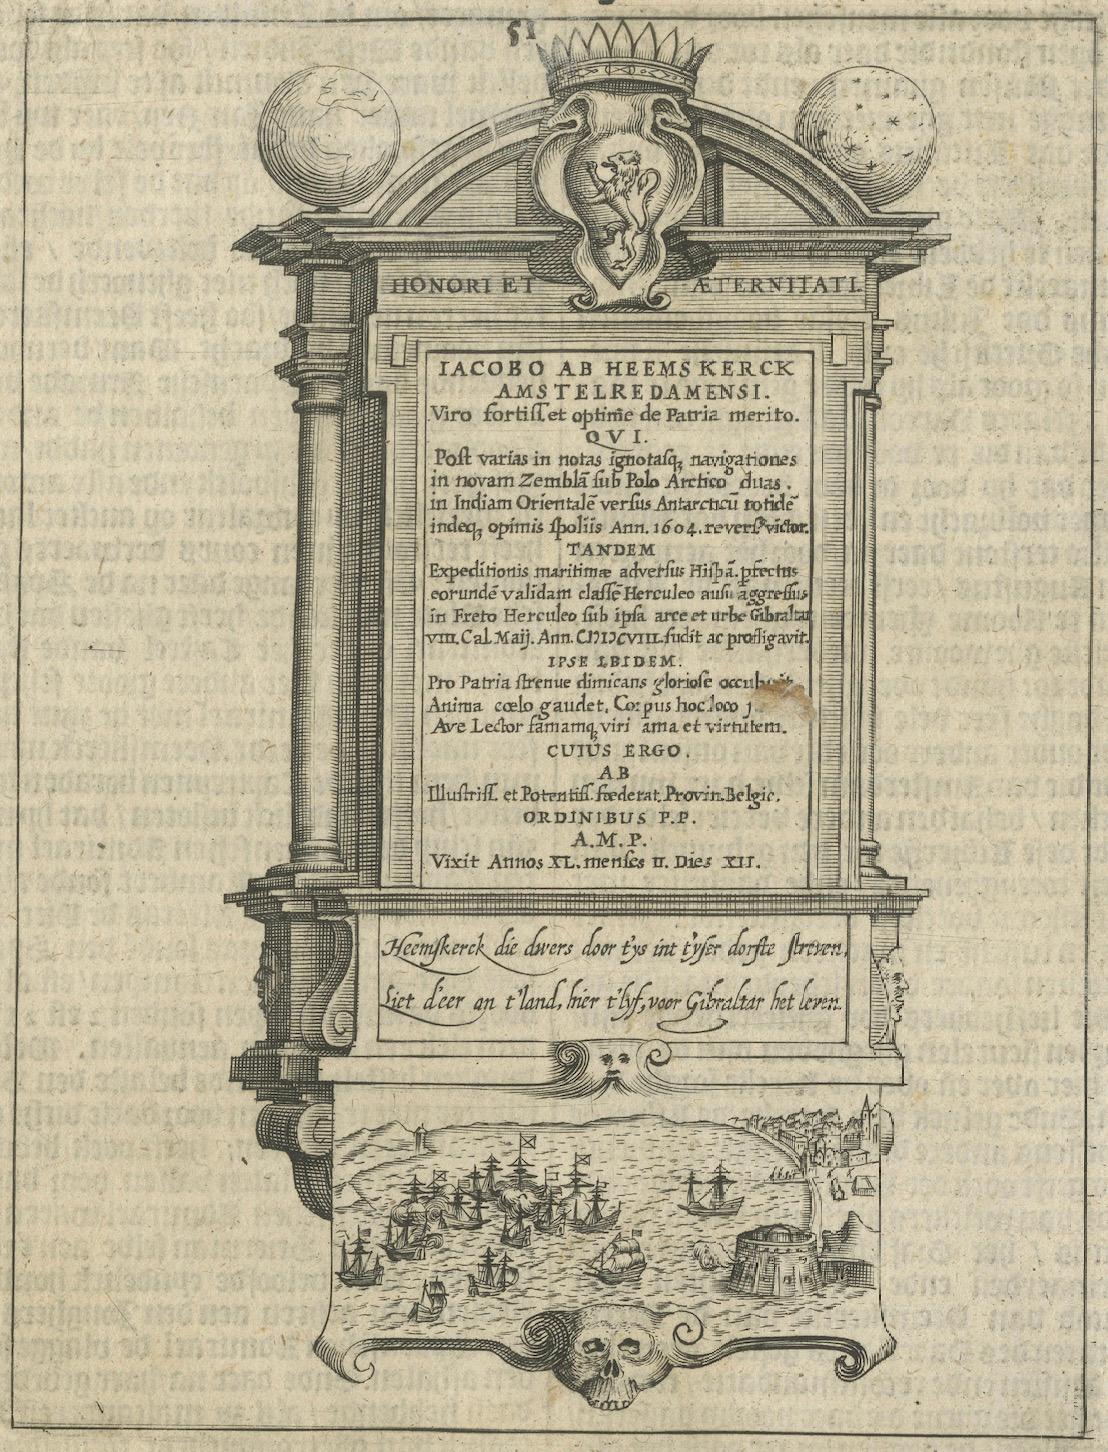 51
HONORI ET ÆTERNITATI.
IACOBO AB HEEMSKERCK
AMSTELREDAMENSI.
Viro fortiſſ. et optimē de Patria merito.
QVI.
Post varias in notas ignotasq, navigationes
in novam Zemblā sub Polo Arctico duas.
in Indiam Orientalē versus Antarcticū totidē
indeq, opimis spoliis Ann. 1604. revers9 victor.
TANDEM
Expeditionis maritimæ adversus Hispā. pfectus
eorundē validam classē Herculeo ausu aggressus
in Freto Herculeo sub ipsa arce et urbe Gibraltar
VIII. Cal. Maij. Ann. CIƆIƆCVIII. fudit ac profligavit.
IPSE IBIDEM.
Pro Patria strenue dimicans gloriose
Anima cœlo gaudet, Corpus hoc loco
Ave Lector famamq, viri ama et virtutem.
CUIUS ERGO
AB
Illustriſſ. et Potentiſſ. fœderat. Provin. Belgic.
ORDINIBUS P.P.
A.M.P.
Vixit Annos XL. menses II. Dies XII.
Heemskerck die dwers door t'ys int t'yser dorste streven,
Liet d'eer an t'land, hier t'lyf, voor Gibraltar het leven.